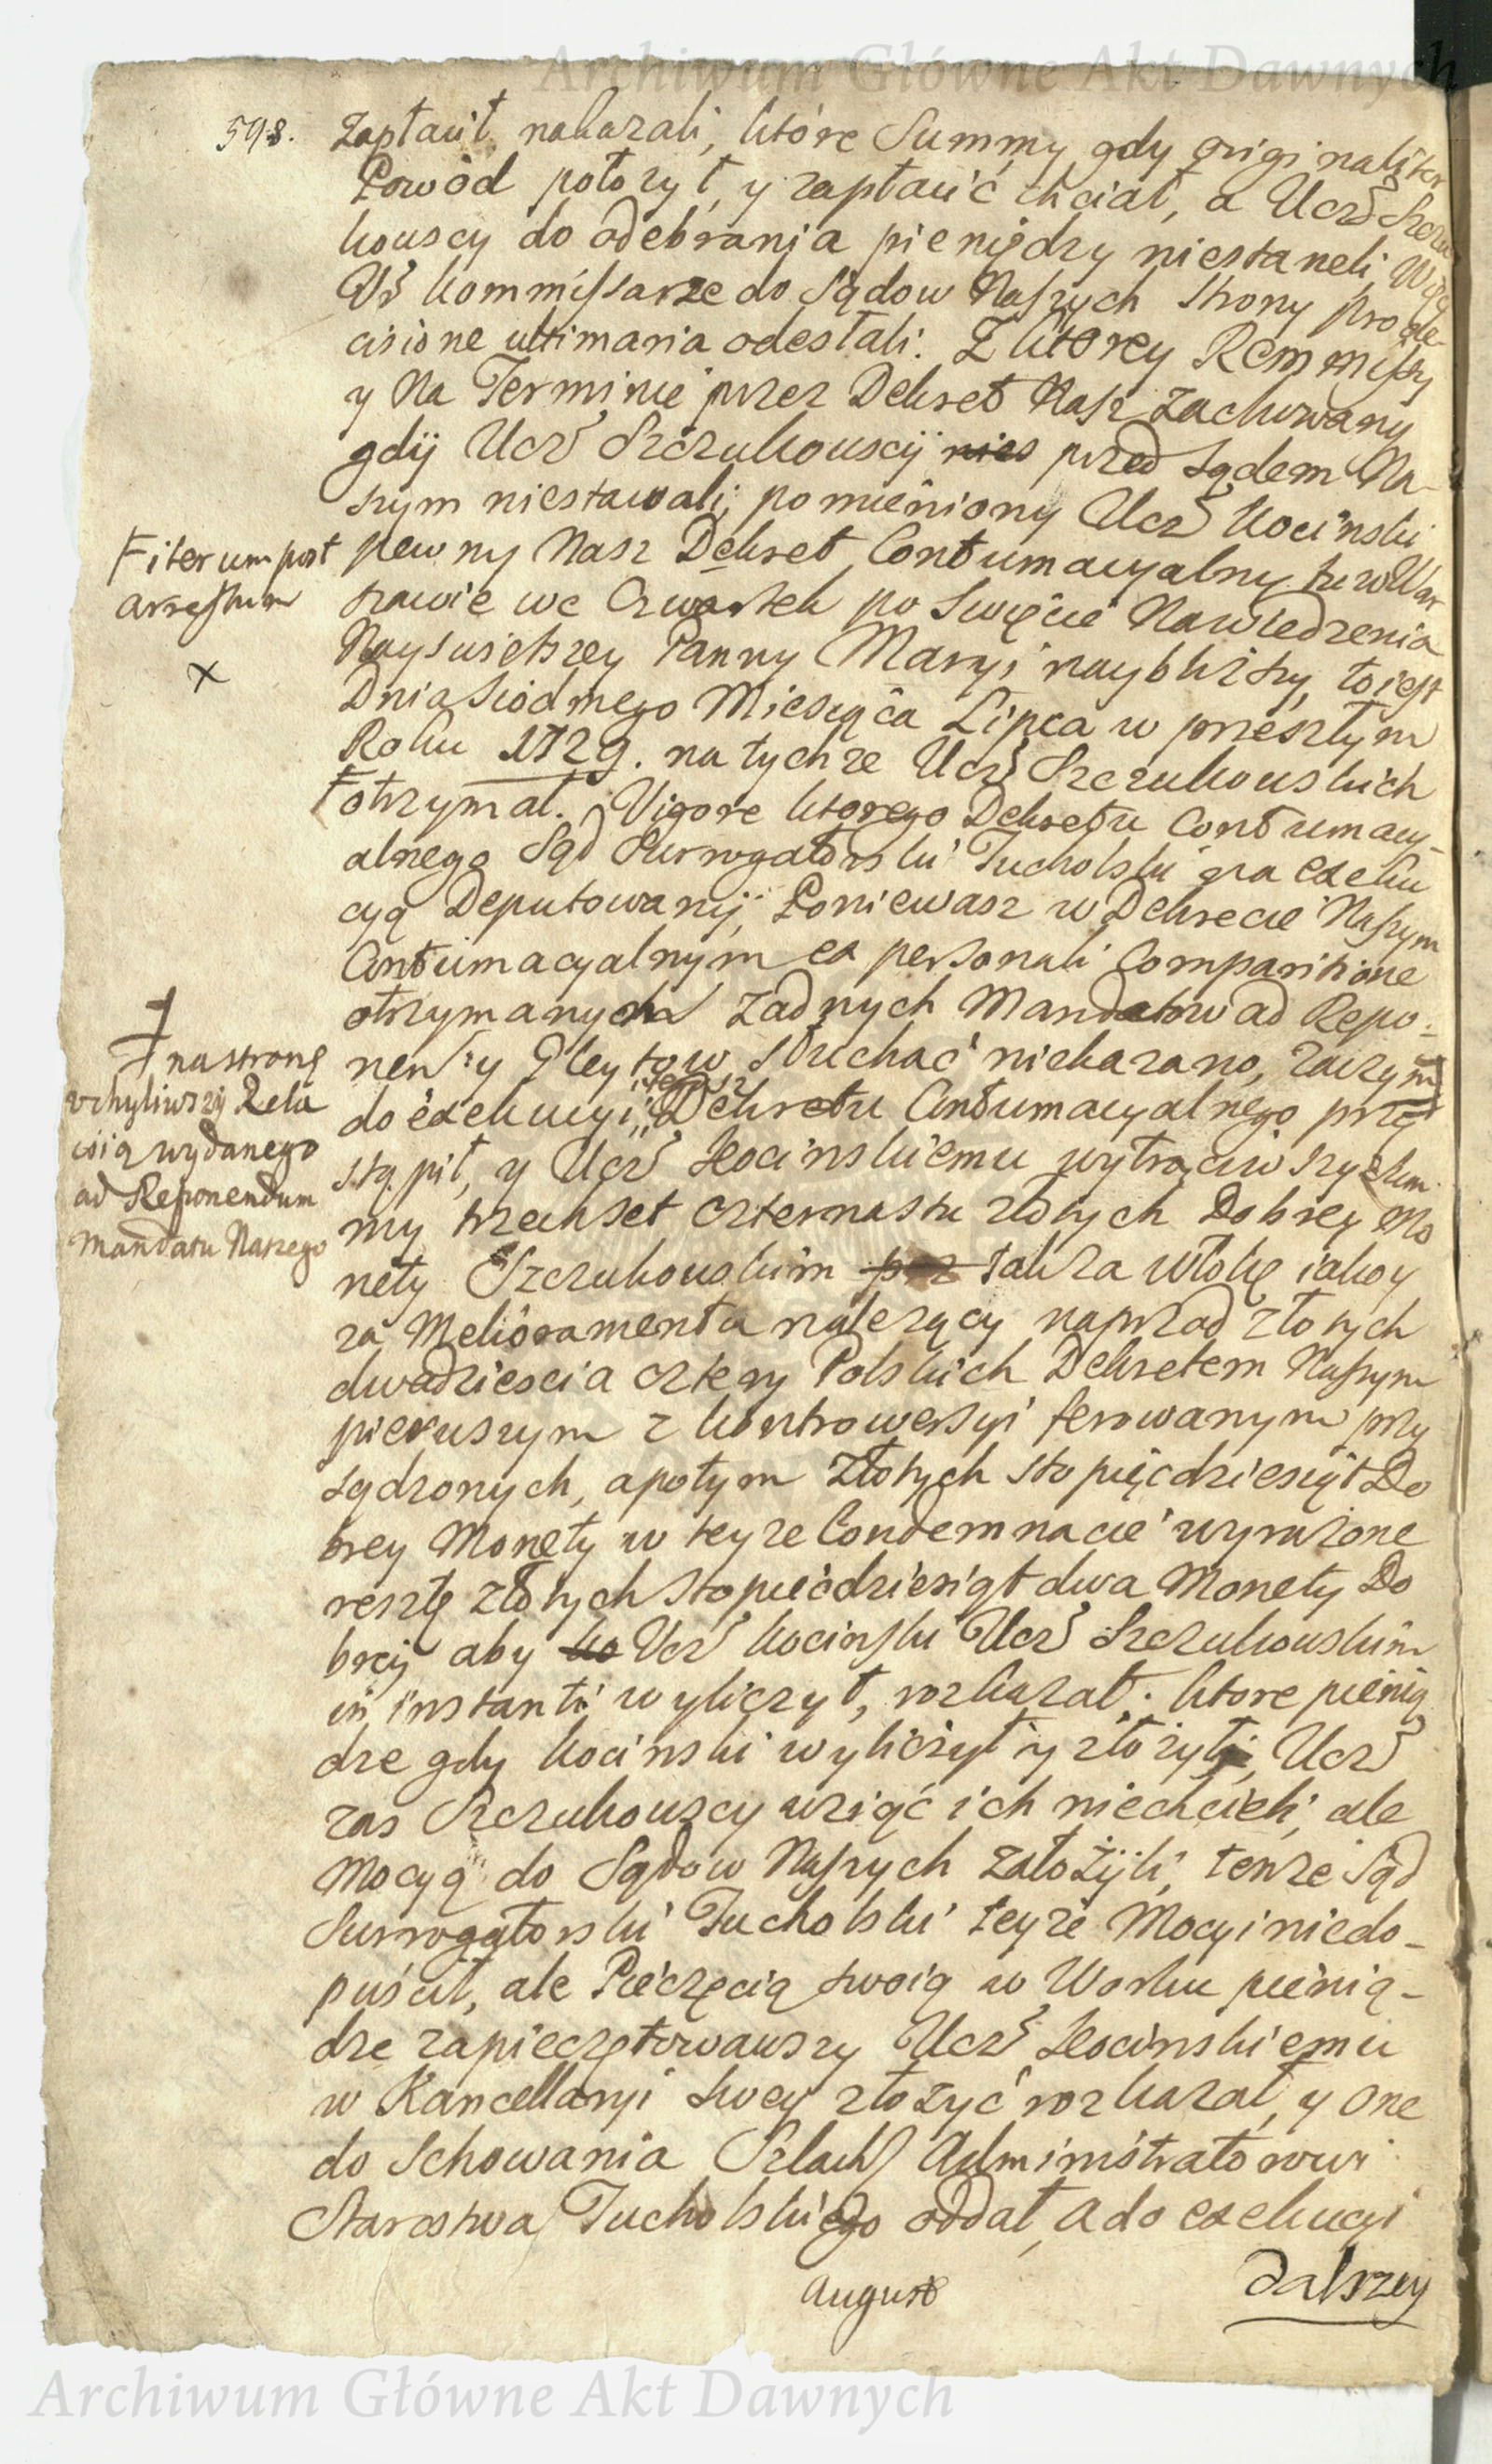 Archiwum Główne Akt Dawnych
598. zapłacił nakazali, które Summy gdy originaliter
Powod położył, y zapłacić chciał, a Ucz Szczu
kouscy do odebrania pieniędzy niestaneli, Więc
Kommissarze do sądow Naszych Strony pro de-
cisione ultimaria odesłali. Z ktorey Remmissy
y Na Terminie przez Dekret Nasz zachowany
gdÿ Ucz Szczukouscÿ nies przed sądem Na-
szym niestawali; pomieniony Ucz Kocinski
pewny Nasz Dekret Contumacyalny tu w War
szawie we Czwartek po Swięcie Nawiedzenia
Nayswietszey Panny Maryi nayblizszy, to iest
Dnia Siodmego Miesiąca Lipca w przeszłym
Roku 1729. na tychze Ucz Szczukouskich
otrzymał. Vigore ktorego Dekretu Contumacy-
alnego Sąd Surrogatorski Tucholski na exeku
cyą Deputowanÿ, Poniewasz w Dekrecie Naszym
Contumacyalnym ex personali Comparitione
otrzymanych żadnych Mandatow ad Repo-
nen: y Gleytow słuchać niekazano, zaczym
do exekucyi tegosz Dekretu Contumacyalnego przy
stąpił, y Ucz Kocinskiemu wytrąciwszy z Sum
my trzechset czternastu złotych Dobrey Mo
nety Szczukouskim prz tak za włokę iako y
za Melioramenta nalezący naprzod złotych
dwadziescia cztery Polskich Dekretem Naszym
pierwszym z kontrowersyi ferowanym przy
sądzonych, a potym złotych sto pięcdziesiąt Do
brey Monety w teyze Condemnacie wyrażone
resztę złotych sto piecdziesiąt dwa Monety Do
breÿ aby ko Ucz Kocinski Ucz Szczukouskim
in instanti wyliczył, rozkazał. ktore pienią
dze gdy Kocinski wyliczył y złożył, Ucz
zas Szczukouscy wziąć ich niechcieli, ale
Mocyą do Sądow Naszych założÿli, tenze Sąd
Surrogatorski Tucholski teyze Mocyi niedo-
puścił, ale Pieczęcią swoią w Worku pienią-
dze zapieczętowawszy Ucz Kocinskiemu
w Kancellaryi swey złożyć rozkazał, y one
do Schowania Szlach Administratorowi
Starostwa Tucholskiego oddał, a do exekucyi
August dalszey
F iterum post
arrestum
x
na stronę
uchyliwszÿ Rela
cią wydanego
ad Reponendum
Mandatu Naszego
Archiwum Główne Akt Dawnych